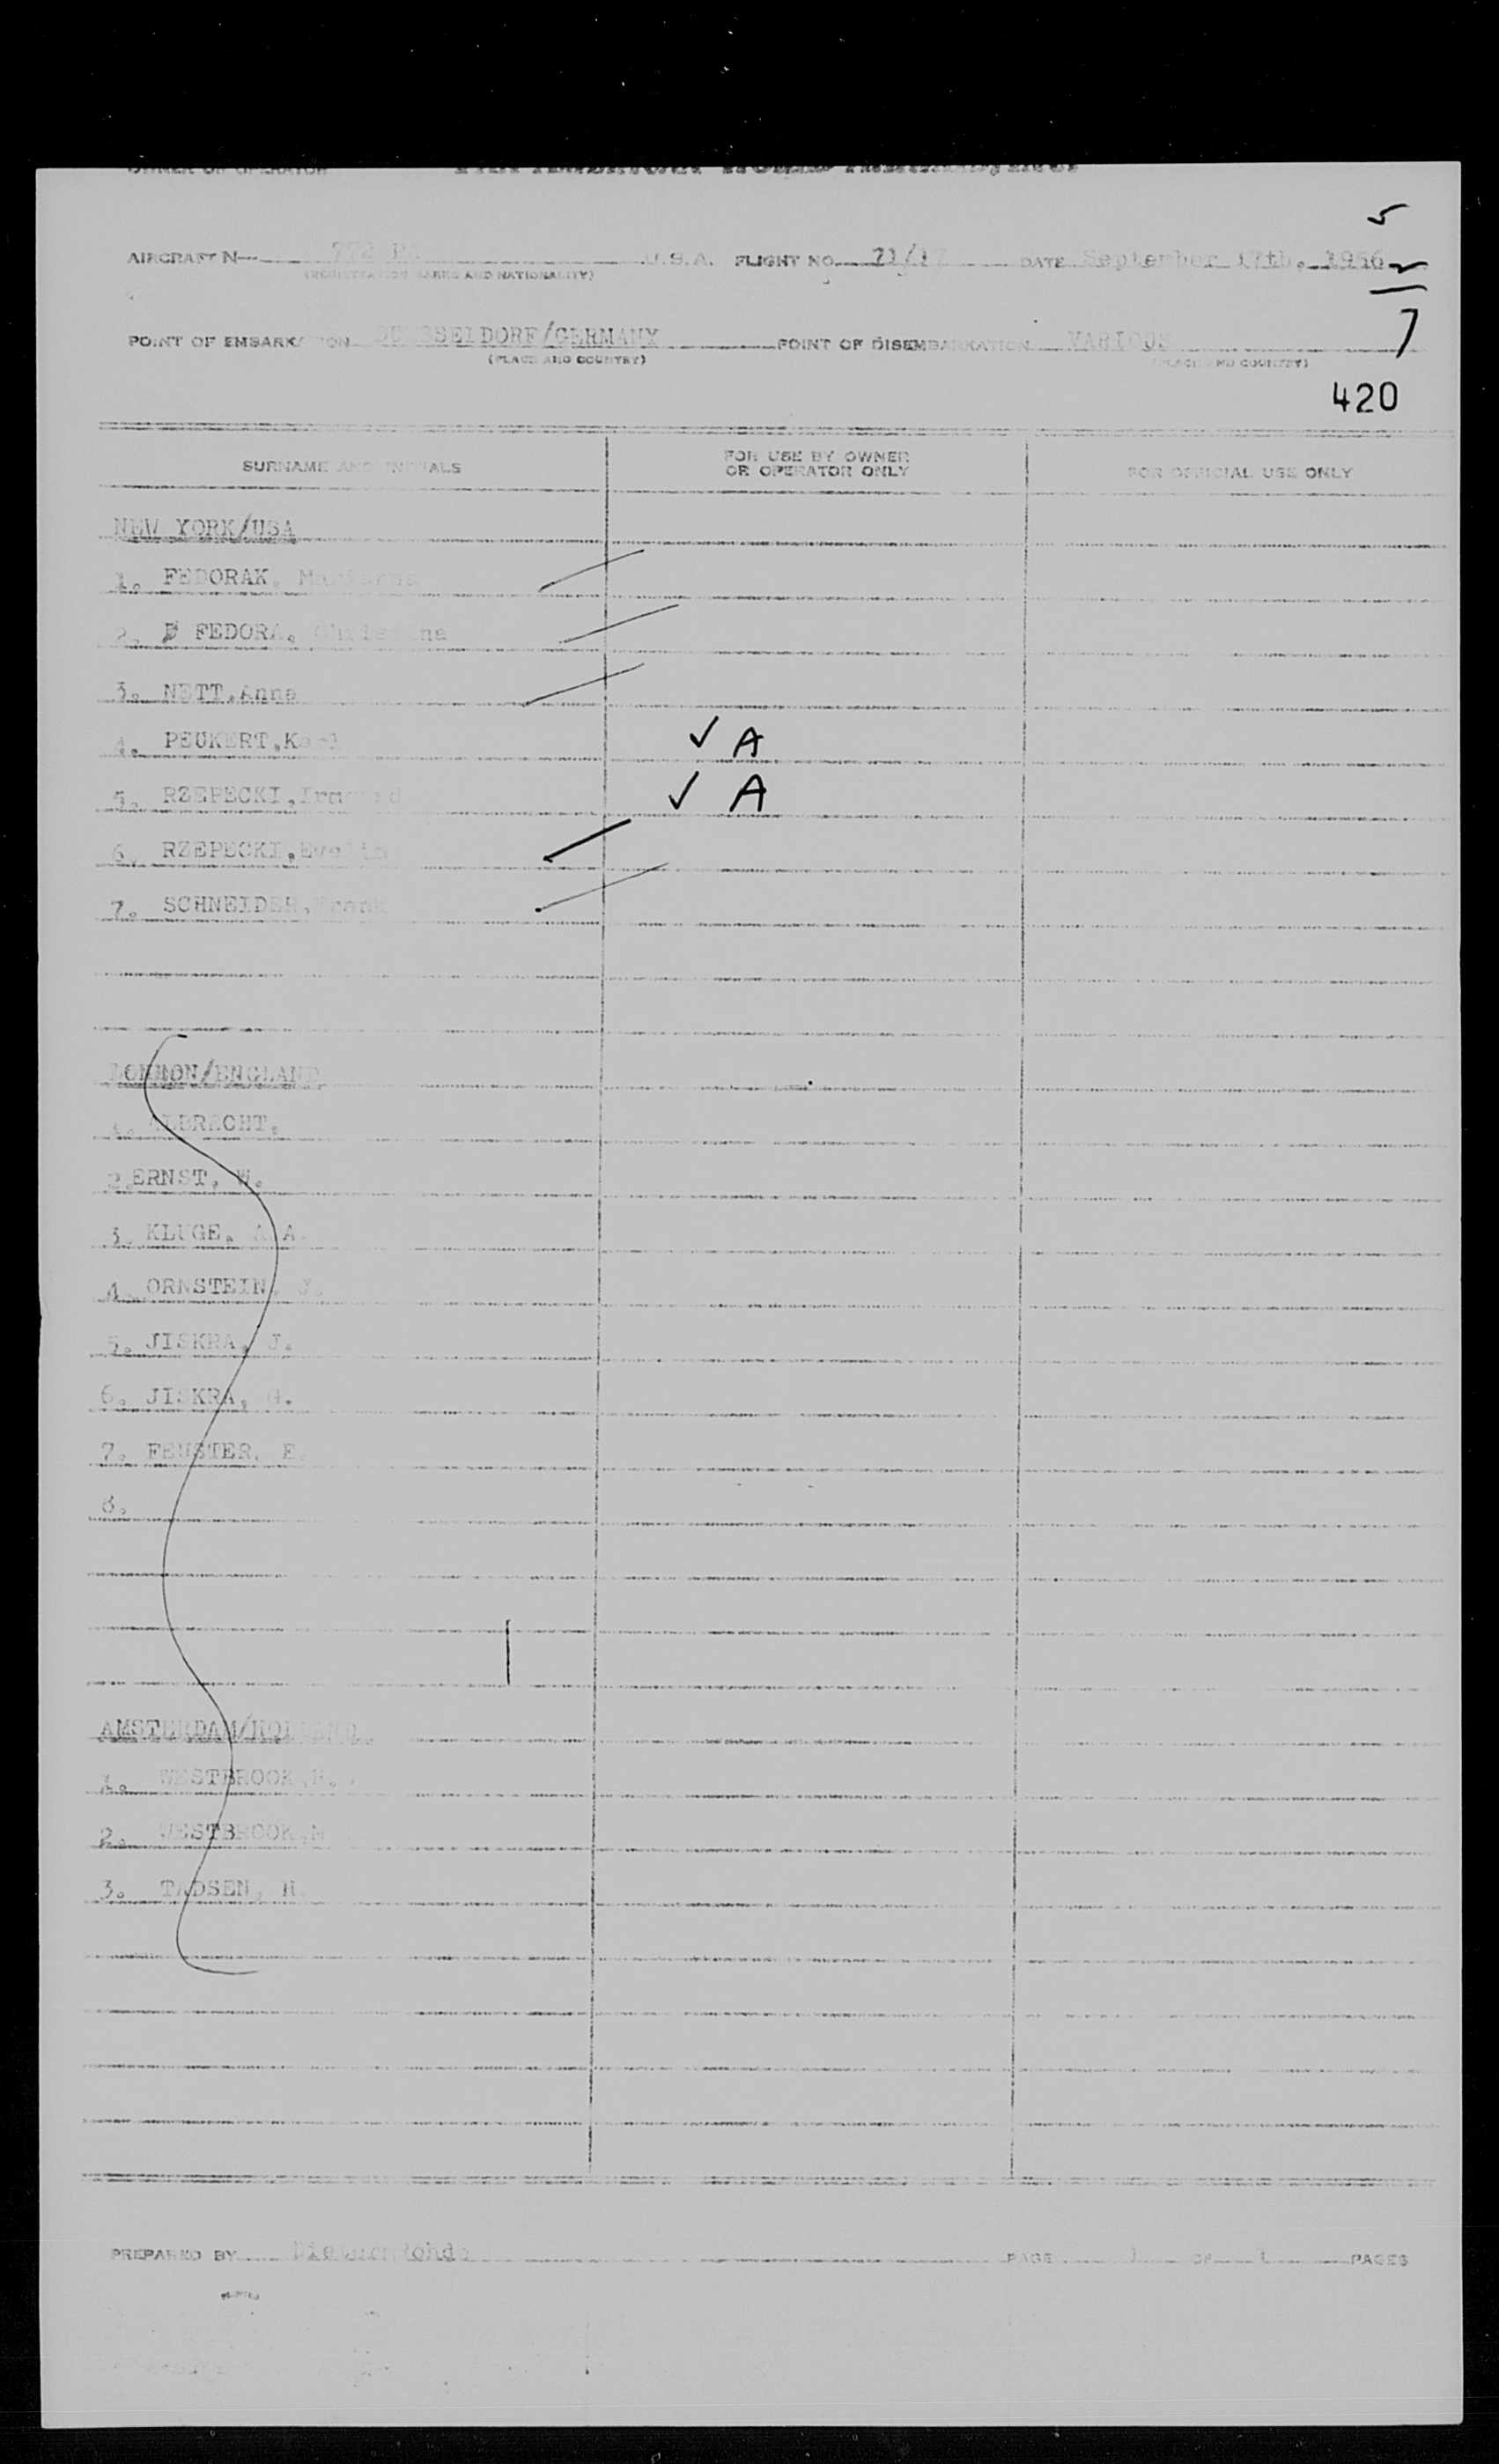 OWNER OR OPERATOR PAN AMERICAN WORLD
5
AIRCRAFT N U.S.A. FLIGHT NO. 71/17 DATE September 17th. 1956 2
(REGISTRATION MARKS AND NATIONALITY)
POINT OF EMBARKATION DUSSELDORF/GERMANY POINT OF DISEMBARKATION VARIOUS 7
(PLACE AND COUNTRY) (PLACE AND COUNTRY)
420
SURNAME AND INITIALS FOR USE BY OWNER OR OPERATOR ONLY FOR OFFICIAL USE ONLY
NEW YORK/USA
1. FEDORAK,
2. FEDORA,
3. NETT,Anna
4. PEUKERT,Karl ✓ A
5. RZEPECKI, ✓ A
6. RZEPECKI,
7. SCHNEIDER,Frank
LONDON/ENGLAND
1. ALBRECHT.
2.ERNST, W.
3. KLUGE, A
4. ORNSTEIN, J.
5. JISKRA, J.
6. JISKRA, G.
7. FENSTER, E.
8.
AMSTERDAM/HOLLAND.
1. WESTBROOK,
2. WESTBROOK,
3. TADSEN, H
PREPARED BY PAGE 1 OF 1 PAGES